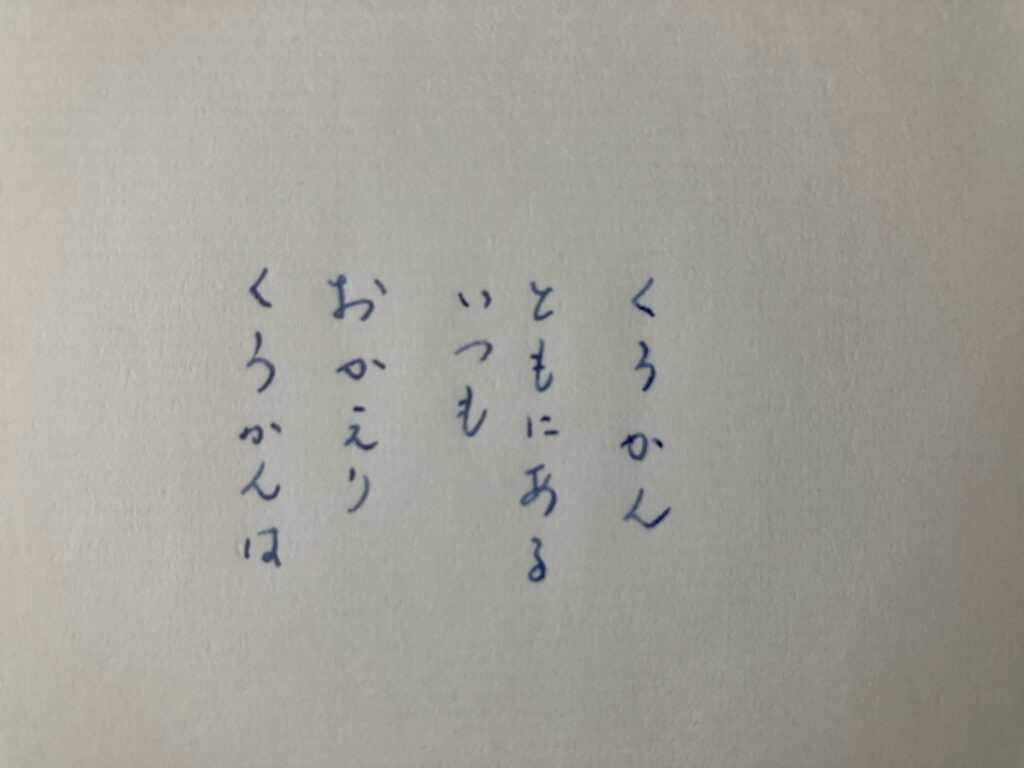 くろかん
ともにある
いつも
おかえり
くろかんは